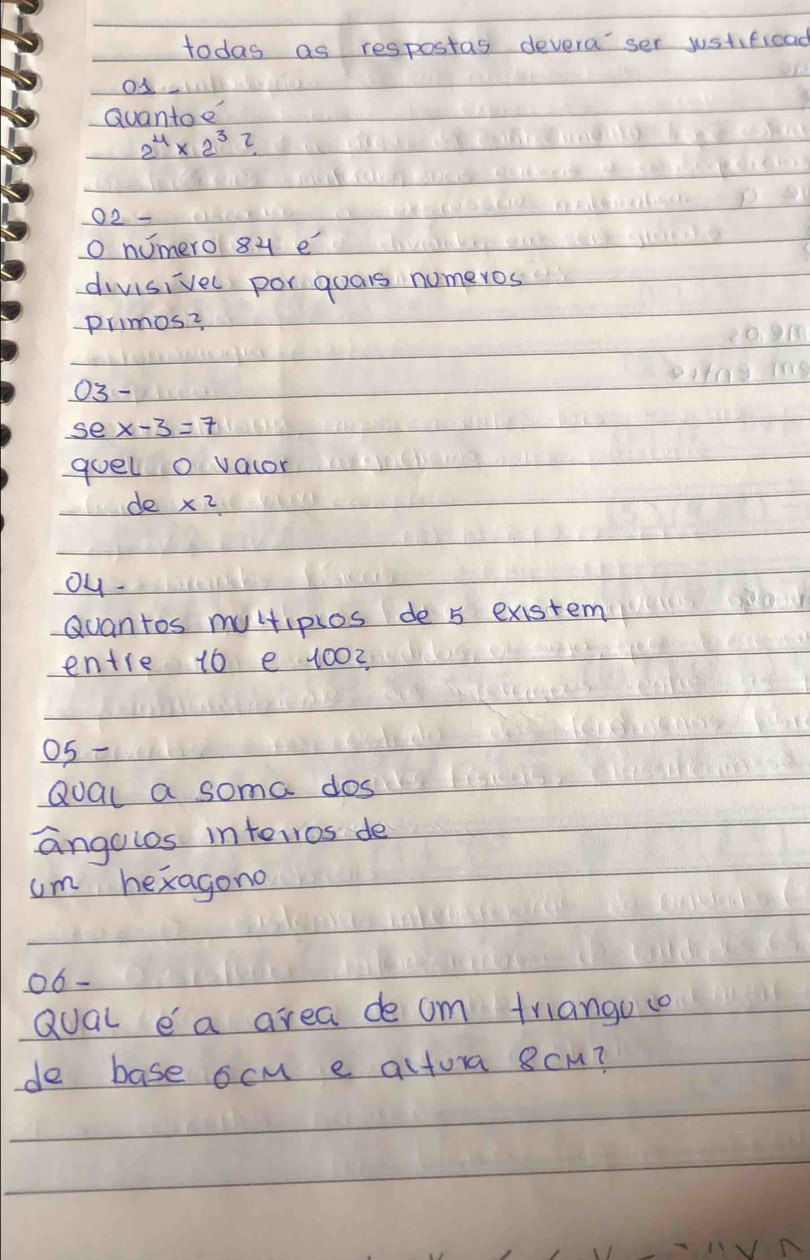 todas as respostas devera ser justificad
01-
Quanto é
2⁴ x 2³ ?
02-
O número 84 é
divisível por quais numeros
primos?
03-
se x-3=7
quel o valor
de x?
04-
Quantos multiplos de 5 existem
entre 10 e 100?
05-
Qual a soma dos
ângulos interros de
um hexagono
06-
QUAL é a area de um triangulo
de base 6cm e altura 8cm?